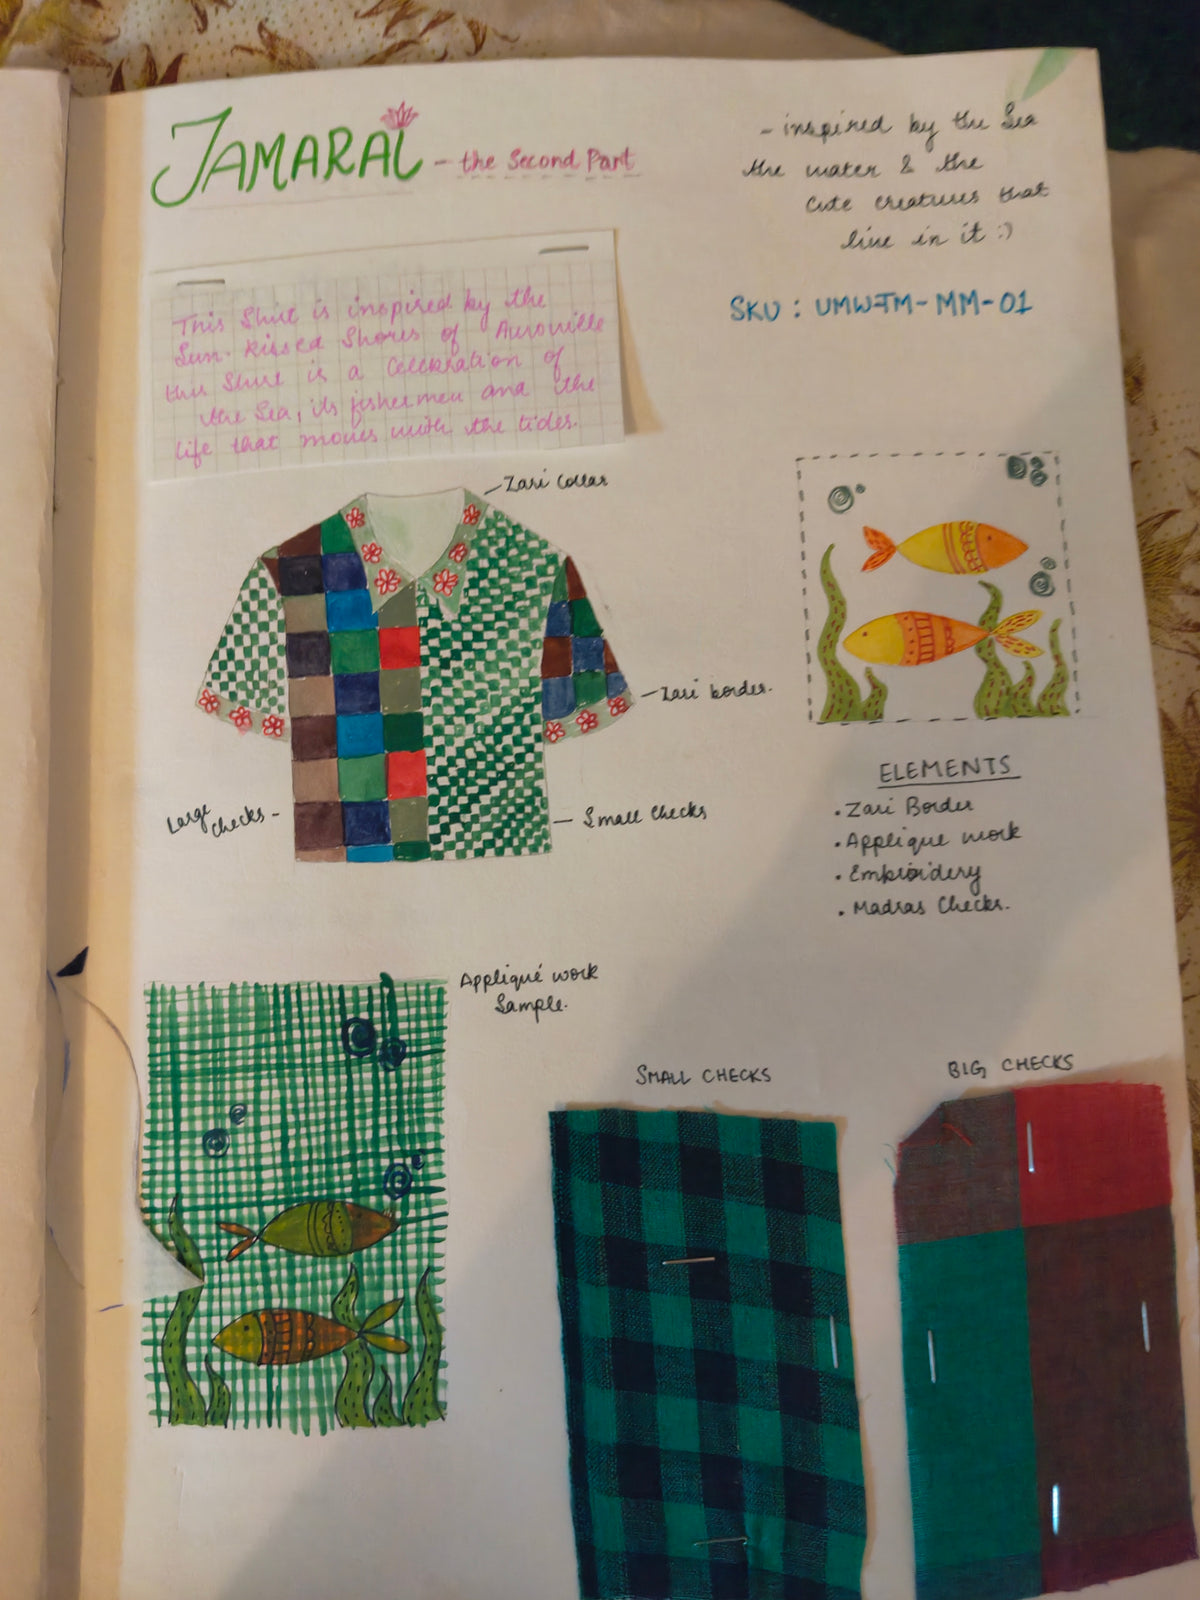 JAMARAI - the Second Part
- inspired by the Sea
the water & the
cute creatures that
live in it :)
SKU : UMWJM-MM-01
This Shirt is inspired by the
Sun-kissed Shores of Auroville
this Shirt is a Celebration of
the Sea, its fishermen and the
life that moves with the tides.
Zari Collar
Zari border.
Large
Checks -
Small Checks
ELEMENTS
• Zari Border
• Applique work
• Embroidery
• Madras Checks.
Appliqué work
Sample.
SMALL CHECKS
BIG CHECKS